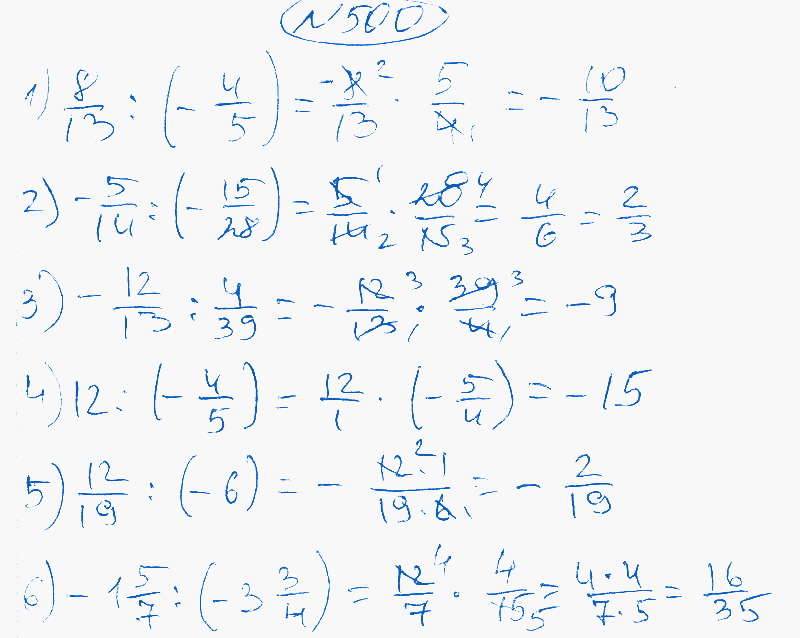 N500
1) 8/13 : (- 4/5) = -8 2/13 · 5/4 1 = - 10/13
2) - 5/14 : (- 15/28) = 5 1/14 2 · 28 4/15 3 = 4/6 = 2/3
3) - 12/13 : 4/39 = - 12 3/13 1 · 39 3/4 1 = -9
4) 12 : (- 4/5) = 12/1 · (- 5/4) = -15
5) 12/19 : (-6) = - 12 2 · 1/19 · 6 1 = - 2/19
6) -1 5/7 : (-3 3/4) = 12 4/7 · 4/15 5 = 4·4/7·5 = 16/35